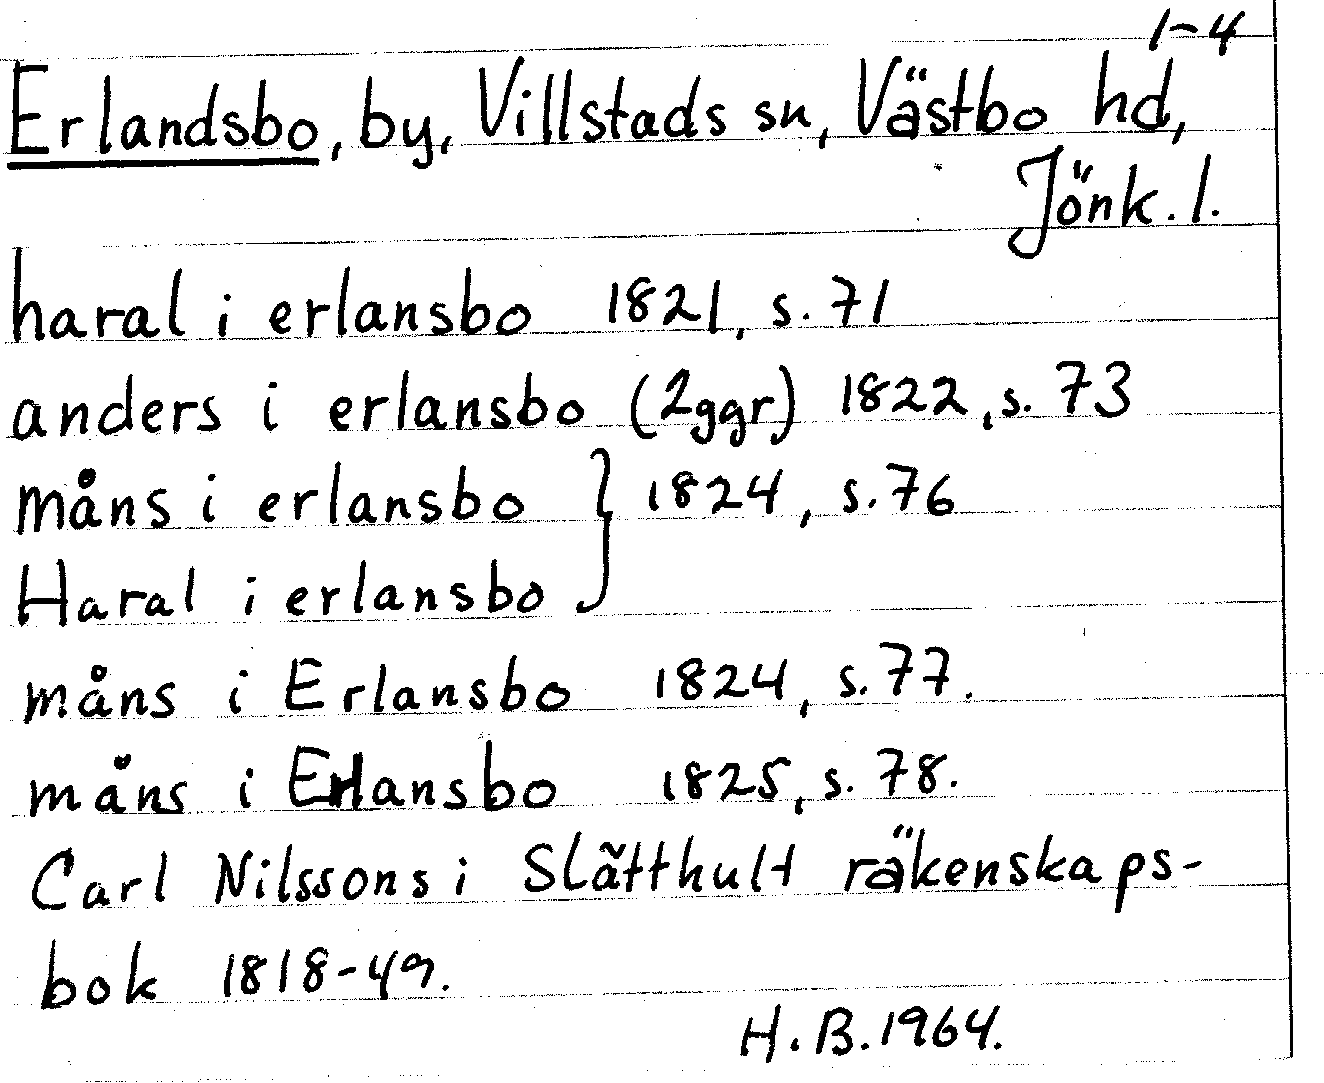 1-4
Erlandsbo, by, Villstads sn, Västbo hd,
Jönk. l.
haral i erlansbo 1821, s. 71
anders i erlansbo (2ggr) 1822, s. 73
måns i erlansbo } 1824, s. 76
Haral i erlansbo
måns i Erlansbo 1824, s. 77.
måns i Erlansbo 1825, s. 78.
Carl Nilssons i Slätthult räkenskaps-
bok 1818-49.
H. B. 1964.